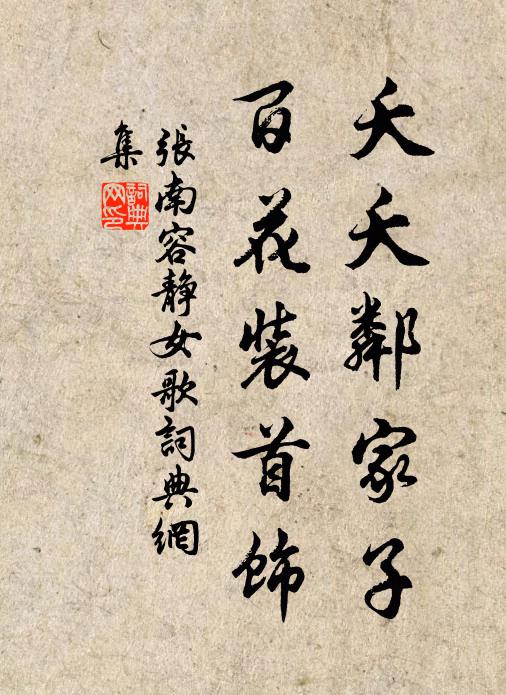 夭夭鄰家子
百花裝首飾
張南容靜女歌詞典網
集
詞典
网印